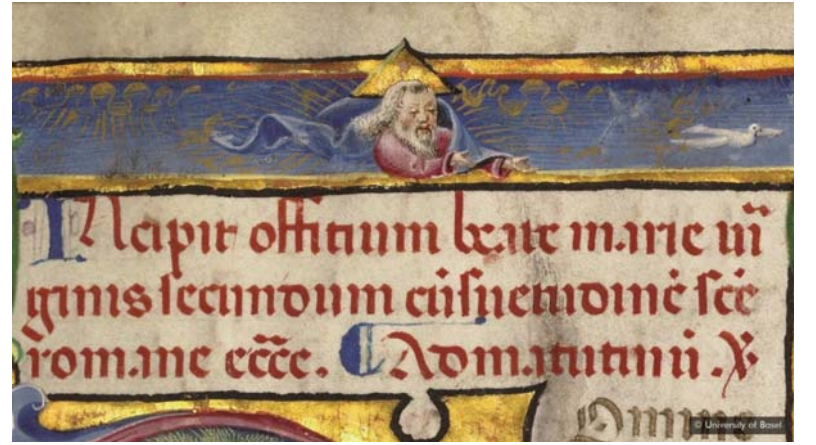 INcipit offitium beate marie uir̄
ginis secundum cūsuetudinē scē
romane eccē. Ad matutinū. ℣
Omine
© University of Basel